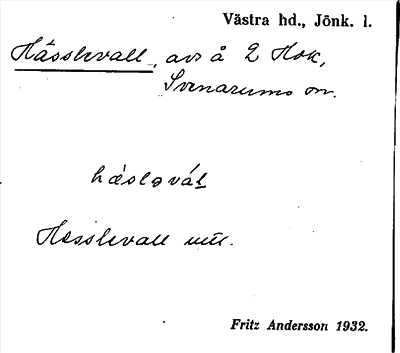 Västra hd., Jönk. l.
Hässlevall, avs å 2 Hok,
Svenarums sn.
hæ´slǝvál̲
Hesslevall
Fritz Andersson 1932.